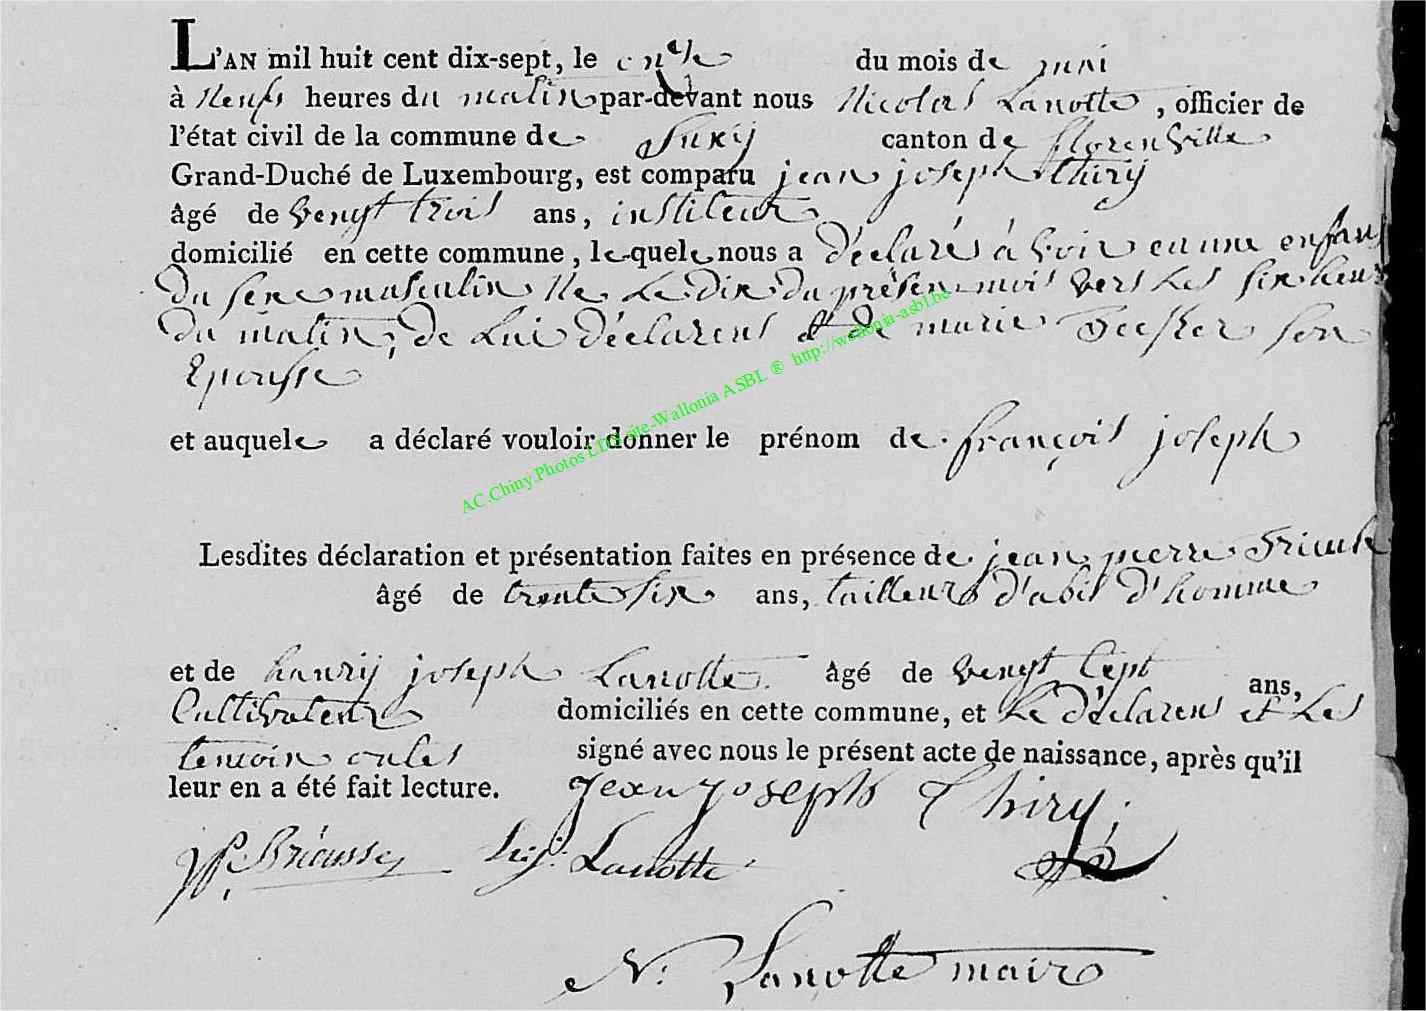 L'AN mil huit cent dix-sept, le onze du mois de mai
à Neufs heures du matin par-devant nous Nicolas Lanotte, officier de
l'état civil de la commune de Suxij canton de florenville
Grand-Duché de Luxembourg, est comparu jean joseph thiry
âgé de vengt trois ans, institeur
domicilié en cette commune, lequele nous a déclarés à voir eu une enfan
du sexe masculin Ne Le dix du présen mois vers Les six heur
du matin, de Lui déclarens et de marie son
Epousse
et auquele a déclaré vouloir donner le prénom de françois joseph
AC.Chiny.Photos LDS site-Wallonia ASBL ® http://wallonia-asbl.be
Lesdites déclaration et présentation faites en présence de jean pierre
âgé de trente six ans, tailleurs d'abis d'homme
et de hanrij joseph Lanotte âgé de vengt sept ans,
Cultivateur domiciliés en cette commune, et Le déclarens et Les
temoin onles signé avec nous le présent acte de naissance, après qu'il
leur en a été fait lecture. Jean Joseph Thiry
Lanotte
N. Lanotte maire